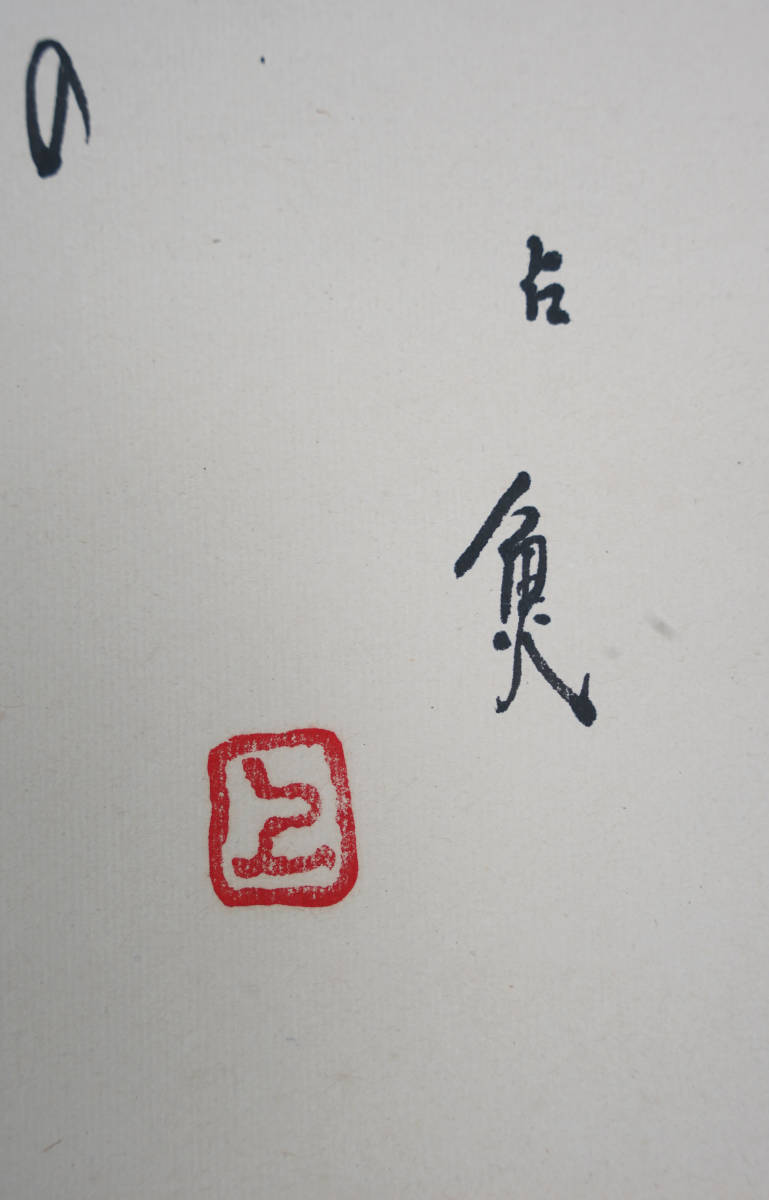 占魚
上
の